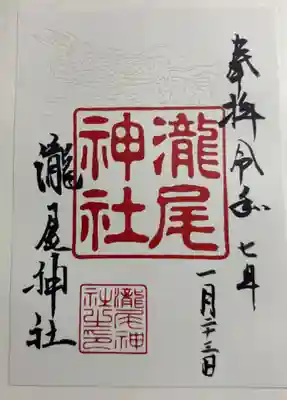 奉拝 令和七年
一月二十三日
瀧尾
神社
瀧尾神社
瀧尾神
社之印